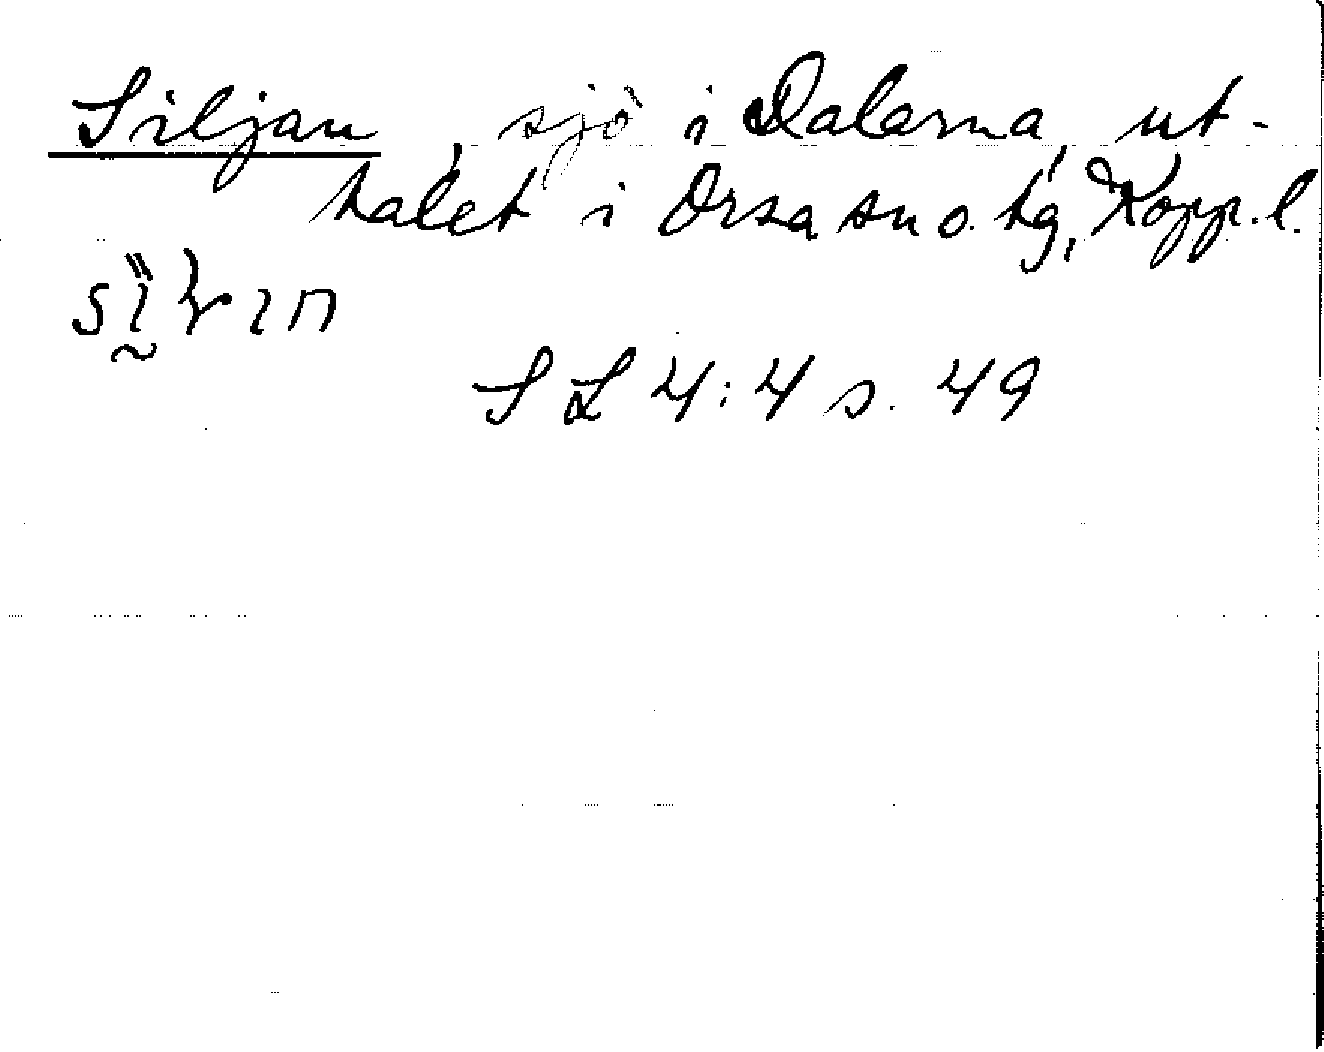 Siljan, sjö i Dalarna, ut-
talet i Orsa sn o. tg, Kopp.l.
SL 4:4 s. 49